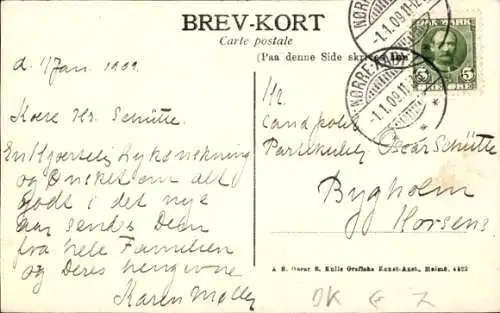 BREV-KORT
Carte postale
(Paa denne Side skrives kun
NØRRE-
-1.1.09.11-12
DANMARK
5 5
NØRRE-
-1.1.09.11-
d. 1 Jan. 1909.
Kære Hr. Schütte.
En hjertelig Lykønskning
og Ønsket om alt
godt i det nye
Aar sendes Dem
fra hele Familien
og Deres hengivne
Karen
Hr.
Cand polit
Oscar Schütte
Bygholm
Horsens
A S. Oscar E. Kulls Grafiska Konst-Anst., Malmö, 4402
DK